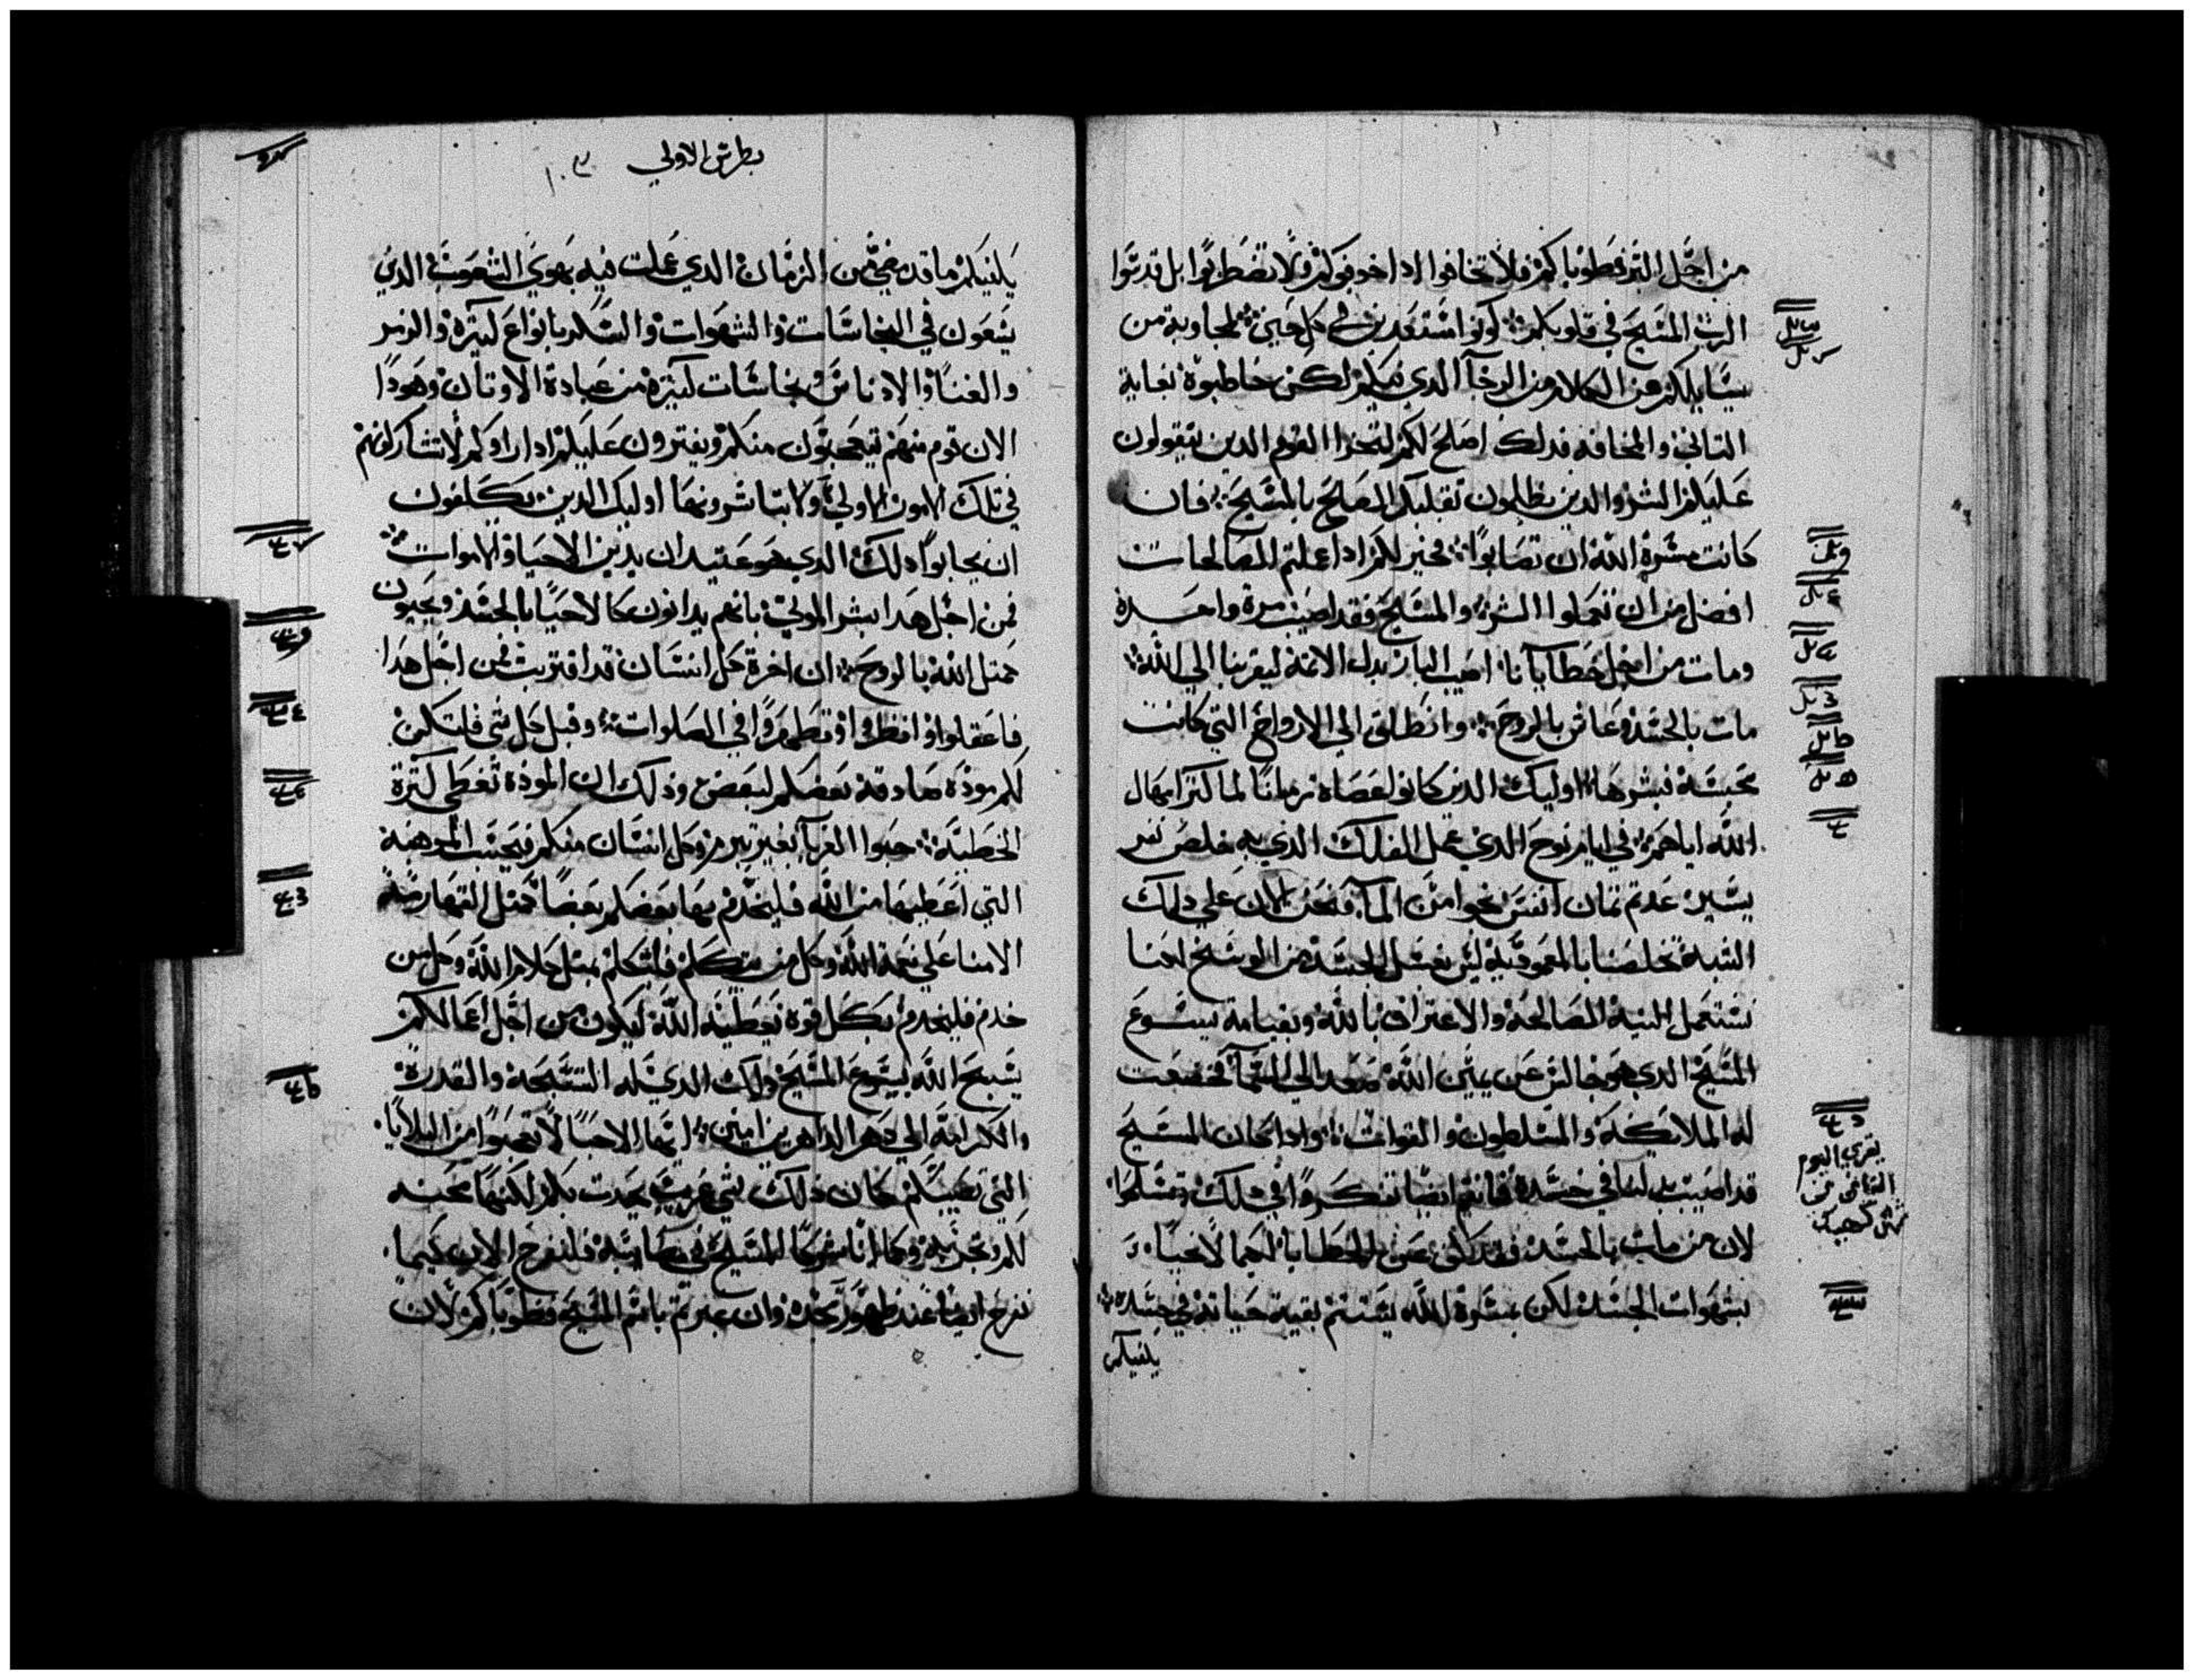 من اجل البر فطوباكم فلا تخافوا اذا خوفوكم ولا تضطربوا بل قدسوا
الرب المسيح في قلوبكم كونوا مستعدين في كل حين لمجاوبة من
يسايلكم عن الكلام من الرجآ الدي فيكم لكن خاطبوه بغاية
التاني والمخافه فدلك اصلح لكم ليخزا القوم الدين يتقولون
عليكم الشر والدين يظلمون تقلبكم الصلح بالمسيح فان
كانت مسرة الله ان تصابوا فخير لكم ادا عملتم الصالحات
افضل من ان تعملوا الشر والمسيح فقد اصيب مرة واحدة
ومات من اجل خطايانا اصيب البار بدل الاتمة ليقربنا الي الله
مات بالجسد وعاش بالروح وانطلق الي الارواح التي كانت
محبسة فبشرها اوليك الدين كانوا عصاة زمانا لما كتر امهال
الله اياهم في ايام نوح الدي عمل الفلك الذي به خلص نفر
يسير عدتم تمان انفس نجوا من المآ فنحن الان علي دلك
الشبه تخلصنا بالمعمودية ليس بغسل الجسد من الوسخ لكننا
نستعمل النية الصالحة والاعتراف بالله وبقيامة يسوع
المسيح الدي هو جالس عن يمين الله صعد الي السمآ فخضعت
له الملايكة والمسلطون والقوات وادا كان المسيح
قد اصيب بدلنا في جسده فانتم ايضا تفكروا في دلك وتسلحوا
لان من مات بالجسد فقد كف عن الخطايا لكيما لا يحيا
بشهوات الجسد لكن بمسرة الله يستتم بقية حياته في جسده
يلفيكم
يقري اليوم
التاني من
شهر كيهك
بطرس الاولي
١٠٣
يلفيكم ما قد مضي من الزمان الدي عملت فيه بهوي الشعوب الدي
يسعون في النجاسات والشهوات والسكر بانواع كتيرة والزمر
والغنا والادناس نجاسات كتيرة من عبادة الاوتان وهودا
الان قوم منهم يتعجبون منكم ويفترون عليكم ادا راوكم لا تشاركونهم
في تلك الامور الاولي ولا تباشرونها اوليك الدين يكلفون
ان يجابوا دلك الدي هو عتيد ان يدين الاحيا والاموات
فمن اجل هدا بشر الموتي بانهم يدانون كالاحيا بالجسد ويحيون
كمتل الله بالروح ان اخرة كل انسان قد اقتربت فمن اجل هدا
فاعقلوا وافطنوا وتطهروا في الصلوات وقبل كل شي فلتكن
لكم مودة صادقة بعضكم لبعض ودلك ان المودة تغطي كترة
الخطية حبوا الغربآ بغير تبرم وكل انسان منكم فبحسب الموهبة
التي اعطيها من الله فليخدم بها بعضكم بعضا كمتل القهارمة
الامنا علي نعمة الله وكل من يتكلم فليتكلم بمتل كلام الله وكل من
خدم فليخدم بكل قوة يعطيه الله ليكون من اجل اعمالكم
يسبح الله بيسوع المسيح دلك الدي له التسبحة والقدرة
والكرامة الي دهر الداهرين امين ايها الاحبا لا تعجبوا من البلايا
التي تصيبكم كان دلك شي غريب يحدت بكم لكنها محنه
لكم وتجربة وكما انا شركا المسيح في مصايبه فلنفرح الان كيما
نفرح ايضا عند ظهور مجده وان عيرتم باسم المسيح فطوباكم لان